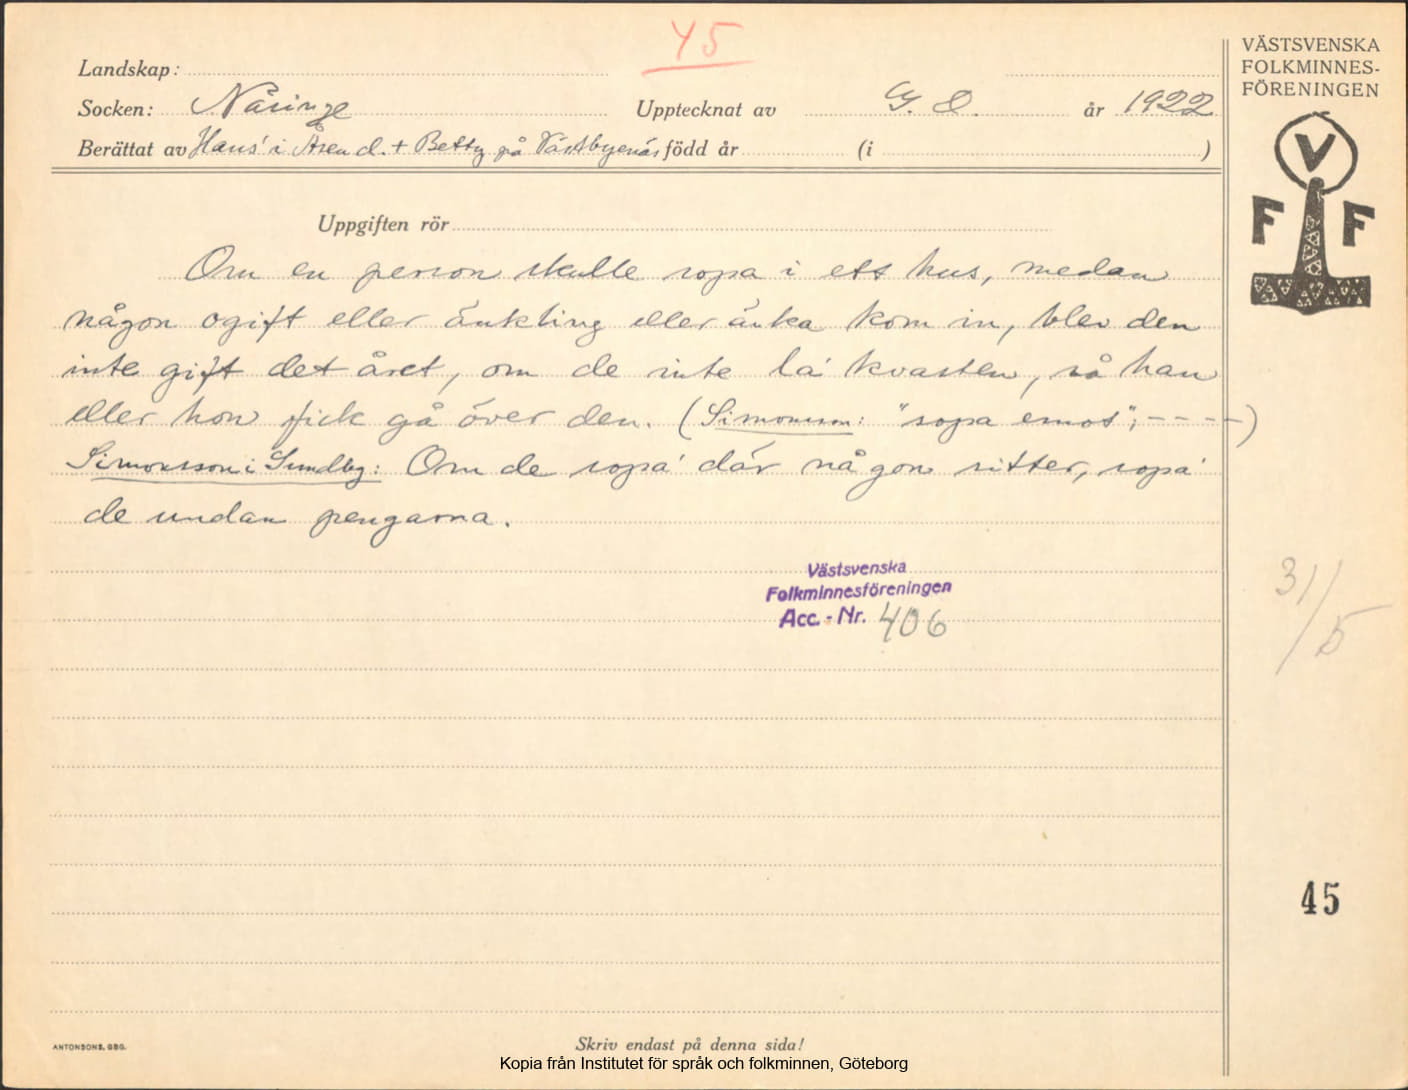 45
Landskap:
Socken: Nösinge Upptecknat av G. O. år 1922
Berättat av Hans' i Åsen d. + Betty på Västbyenäs född år (i )
VÄSTSVENSKA
FOLKMINNES-
FÖRENINGEN
V
F F
Uppgiften rör
Om en person skulle sopa i ett hus, medan
någon ogift eller änkling eller änka kom in, blev den
inte gift det året, om de inte la' kvasten, så han
eller hon fick gå över den. (Simonsson: "sopa emot"; - - - -)
Simonsson i Sundby: Om de sopa' där någon sitter, sopa'
de undan pengarna.
Västsvenska
Folkminnesföreningen
Acc. - Nr. 406
31/5
45
ANTONSONS, GBG.
Skriv endast på denna sida!
Kopia från Institutet för språk och folkminnen, Göteborg